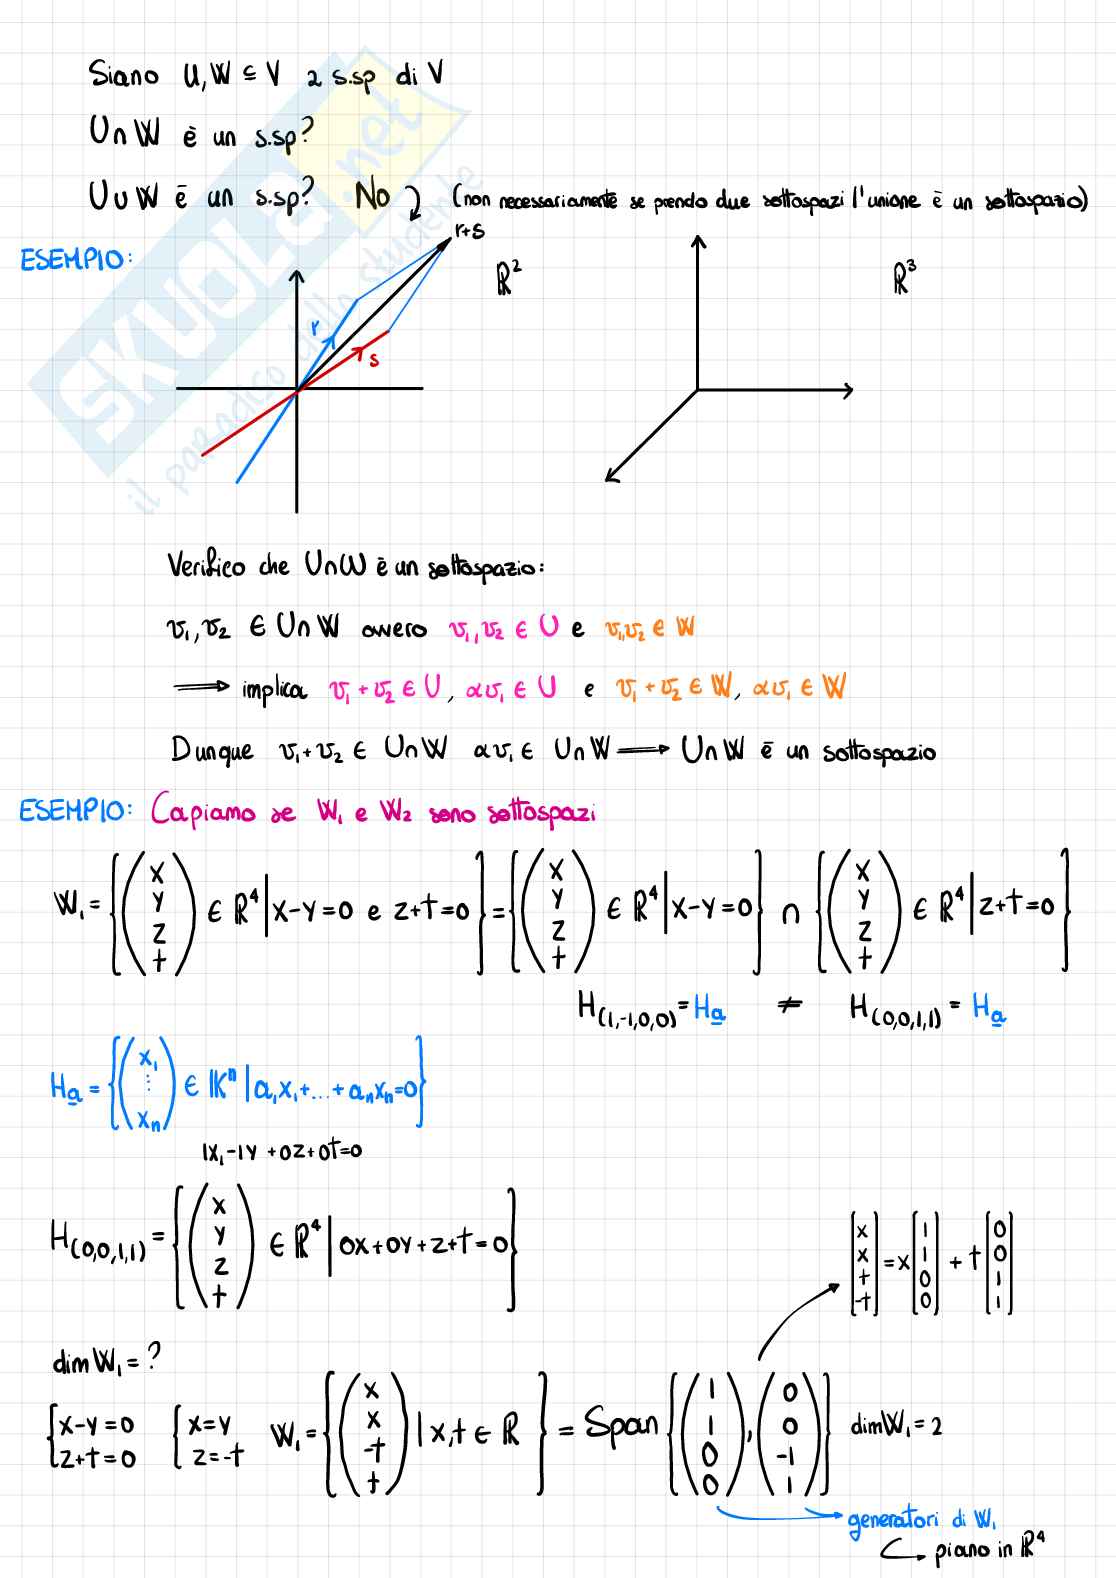 Siano U, W ⊆ V 2 s.sp di V
U∩W è un s.sp?
U∪W è un s.sp? No (non necessariamente se prendo due sottospazi l'unione è un sottospazio)
ESEMPIO:
r+s
r
s
ℝ²
ℝ³
Verifico che U∩W è un sottospazio:
v₁, v₂ ∈ U∩W ovvero v₁, v₂ ∈ U e v₁, v₂ ∈ W
⟹ implica v₁ + v₂ ∈ U, αv₁ ∈ U e v₁ + v₂ ∈ W, αv₁ ∈ W
Dunque v₁ + v₂ ∈ U∩W αv₁ ∈ U∩W ⟹ U∩W è un sottospazio
ESEMPIO: Capiamo se W₁ e W₂ sono sottospazi
W₁ = {(x y z t) ∈ ℝ⁴ | x-y=0 e z+t=0} = {(x y z t) ∈ ℝ⁴ | x-y=0} ∩ {(x y z t) ∈ ℝ⁴ | z+t=0}
H(1,-1,0,0) = Ha ≠ H(0,0,1,1) = Ha
Ha = {(x₁ ⋮ xₙ) ∈ 𝕂ⁿ | a₁x₁+...+aₙxₙ=0}
1x₁-1y+0z+0t=0
H(0,0,1,1) = {(x y z t) ∈ ℝ⁴ | 0x+0y+z+t=0}
[x x t -t] = x[1 1 0 0] + t[0 0 1 1]
dim W₁ = ?
{x-y=0 z+t=0 {x=y z=-t W₁ = {(x x -t t) | x,t ∈ ℝ} = Span{(1 1 0 0), (0 0 -1 1)} dim W₁ = 2
generatori di W₁
piano in ℝ⁴
SKUOLA.net
il paradiso dello studente